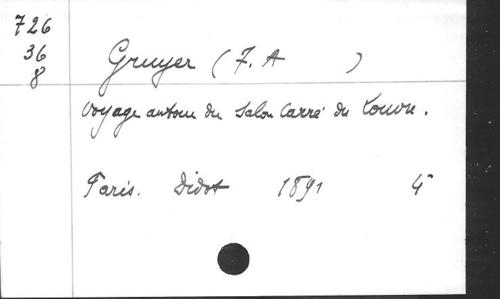 726
36
8
Gruyer (F. A )
Voyage autour du Salon Carré du Louvre.
Paris. Didot 1891 4°